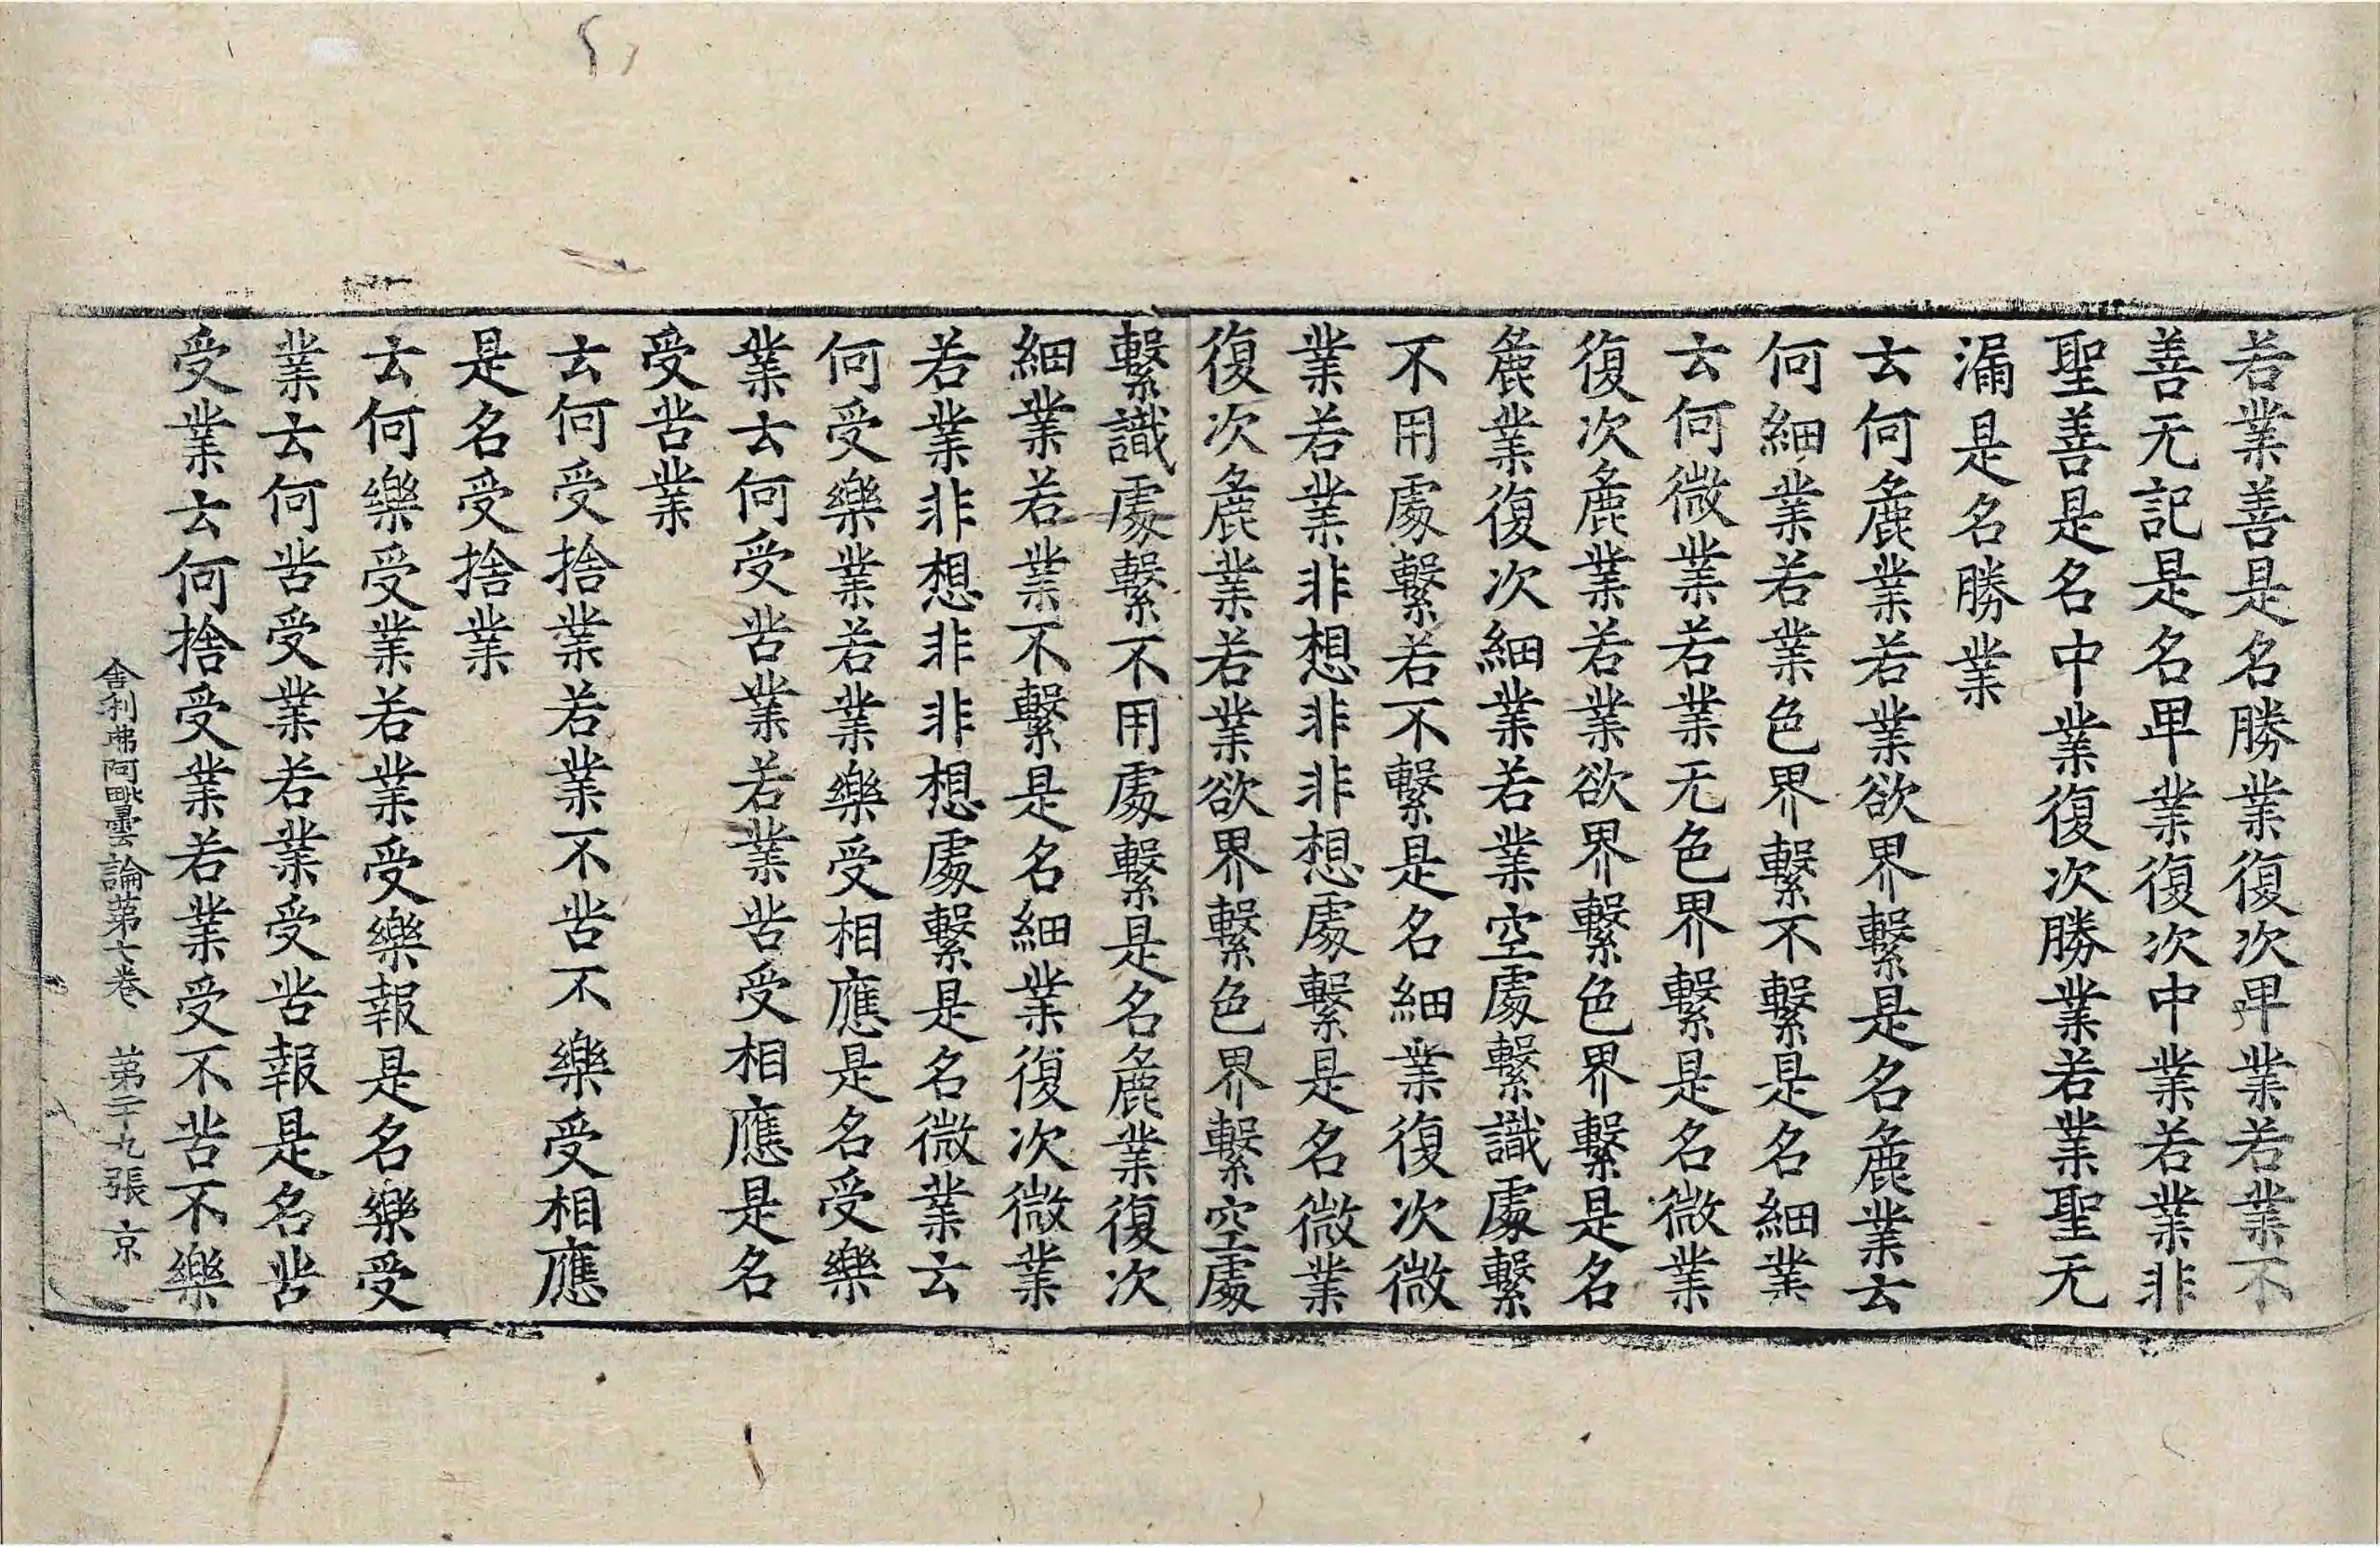 若業善是名勝業復次卑業若業不
善无記是名卑業復次中業若業非
聖善是名中業復次勝業若業聖无
漏是名勝業
云何麁業若業欲界繫是名麁業云
何細業若業色界繫不繫是名細業
云何微業若業无色界繫是名微業
復次麁業若業欲界繫色界繫是名
麁業復次細業若業空處繫識處繫
不用處繫若不繫是名細業復次微
業若業非想非非想處繫是名微業
復次麁業若業欲界繫色界繫空處
繫識處繫不用處繫是名麁業復次
細業若業不繫是名細業復次微業
若業非想非非想處繫是名微業云
何受樂業若業樂受相應是名受樂
業云何受苦業若業苦受相應是名
受苦業
云何受捨業若業不苦不樂受相應
是名受捨業
云何樂受業若業受樂報是名樂受
業云何苦受業若業受苦報是名苦
受業云何捨受業若業受不苦不樂
舍利弗阿毗曇論第七卷 第二十九張 京